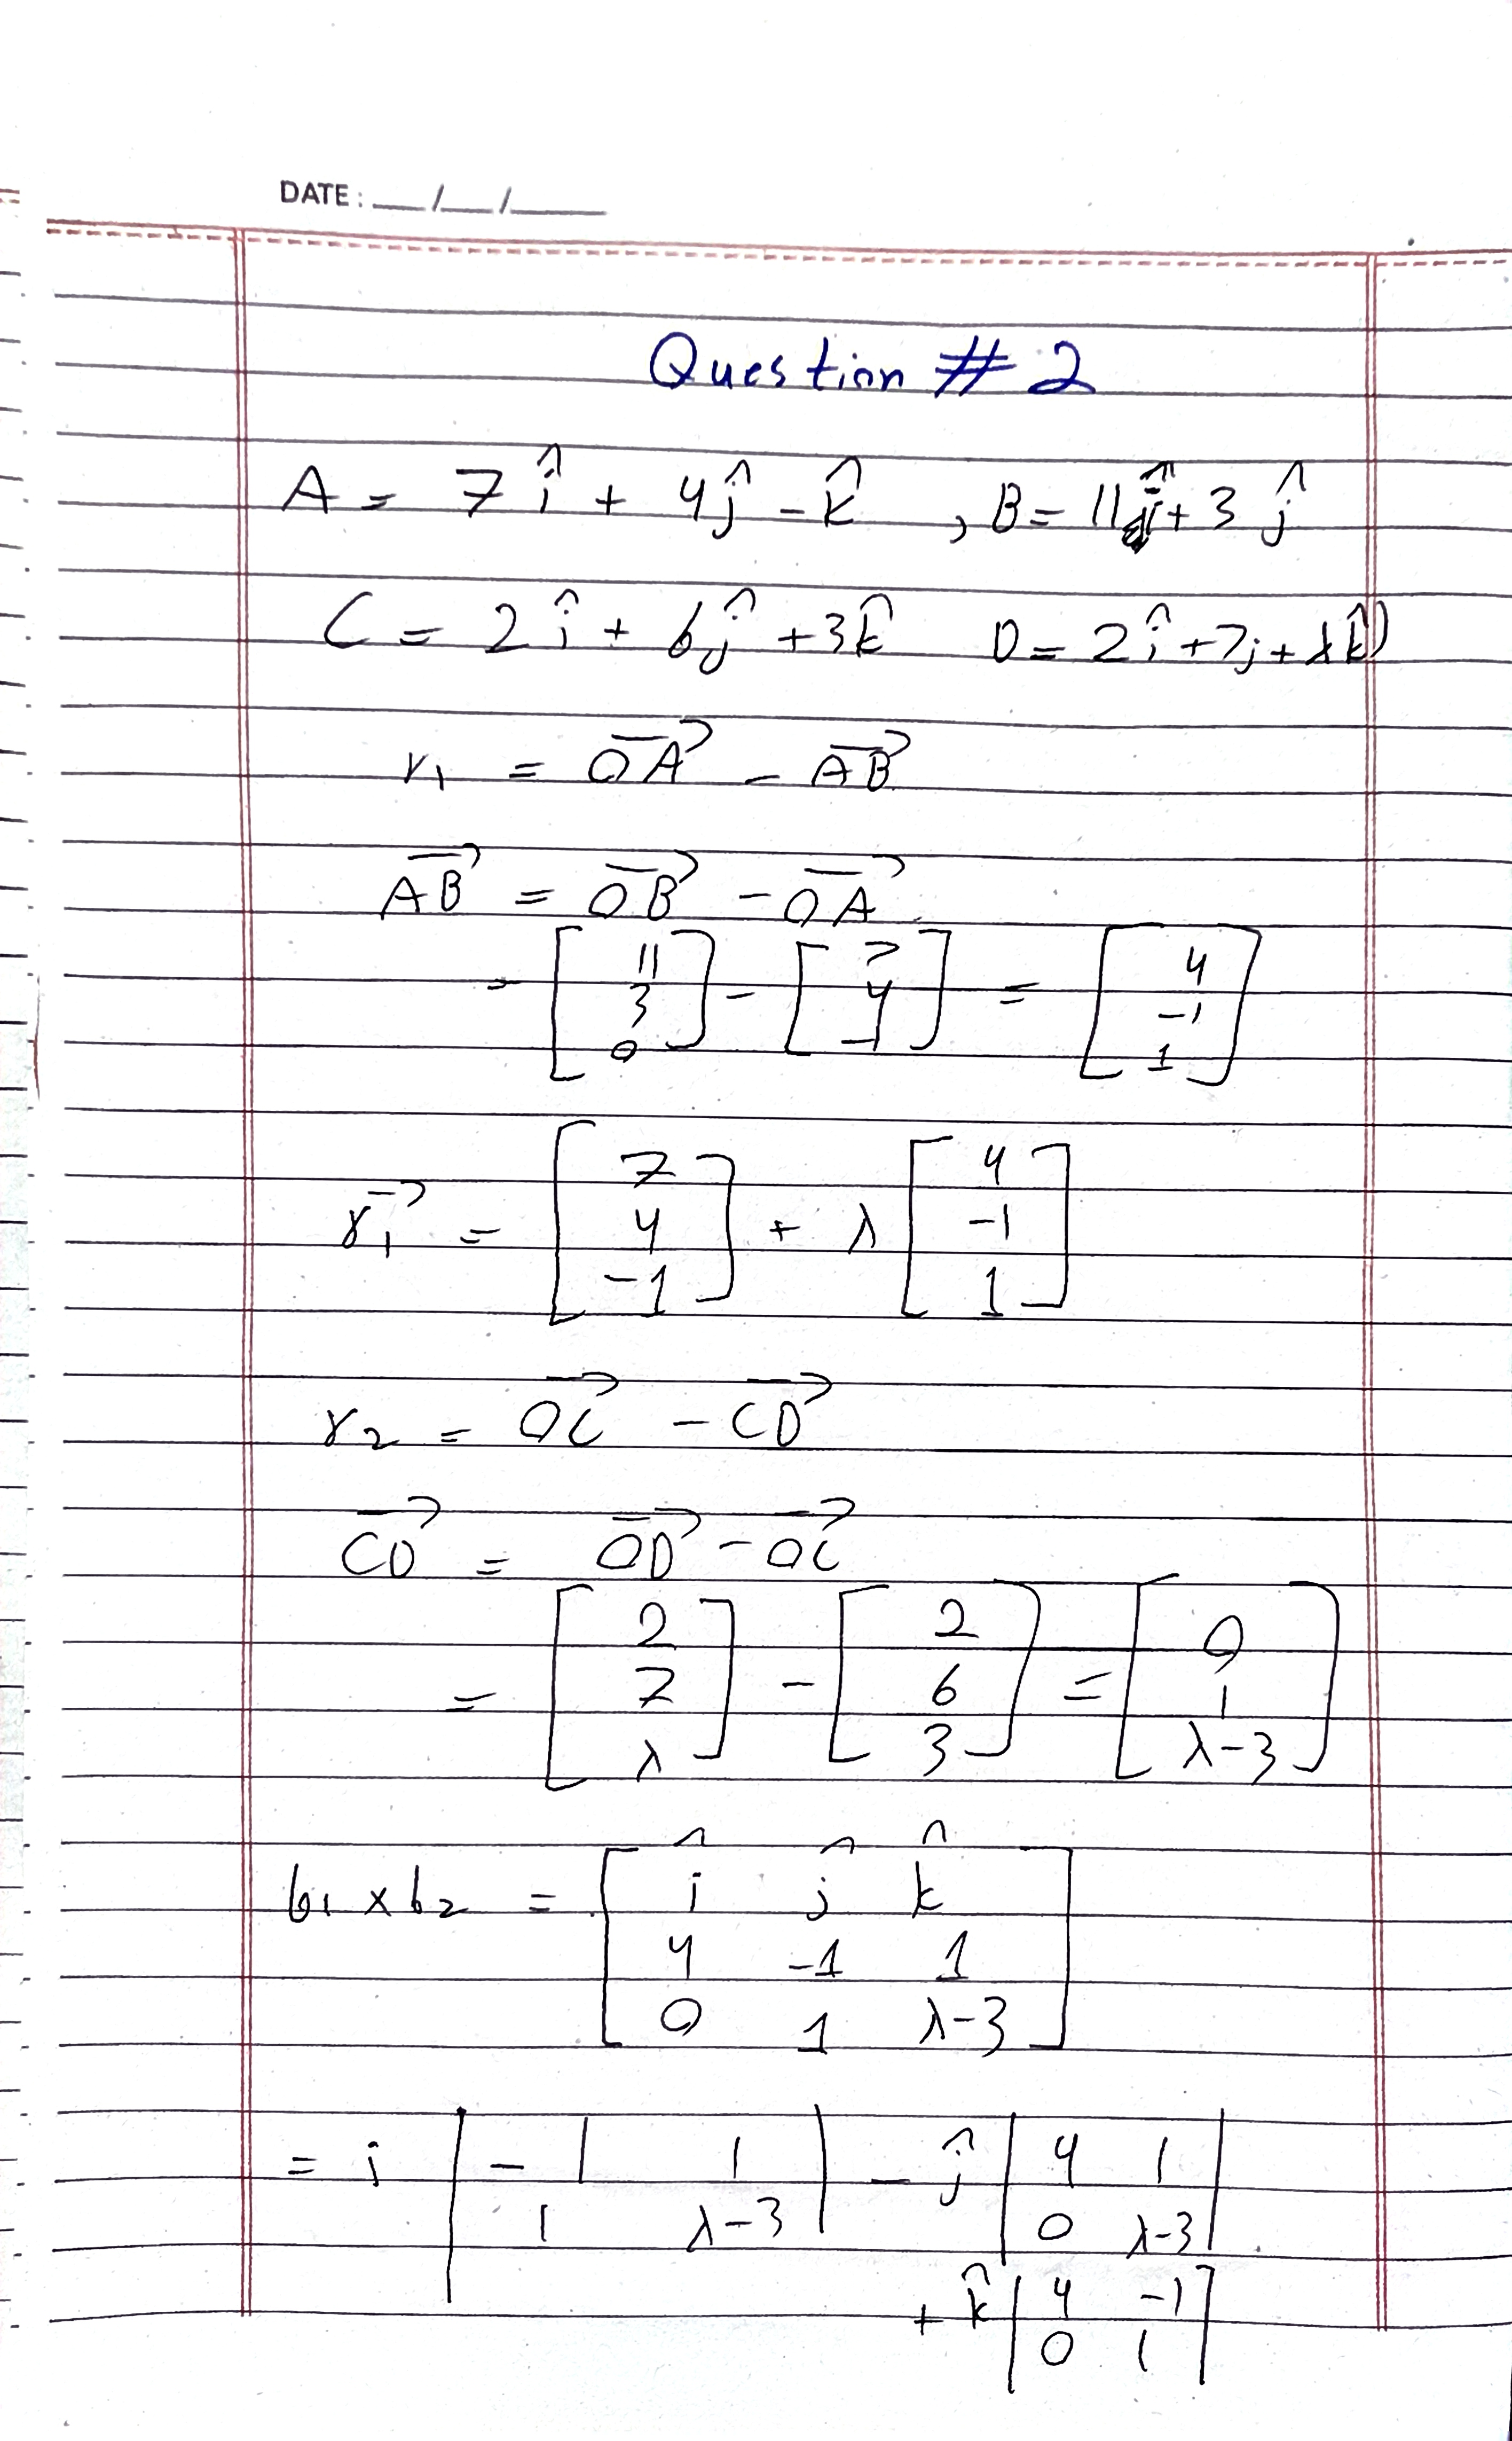 DATE : __/__/____
Question # 2
A = 7î + 4ĵ - k̂ , B = 11î + 3ĵ
C = 2î + 6ĵ + 3k̂ D = 2î + 7j + λk̂)
r₁ = OA⃗ - AB⃗
AB⃗ = OB⃗ - OA⃗
= [11 3 0] - [7 4 -1] = [4 -1 1]
r₁⃗ = [7 4 -1] + λ [4 -1 1]
r₂ = OC⃗ - CD⃗
CD⃗ = OD⃗ - OC⃗
= [2 7 λ] - [2 6 3] = [0 1 λ-3]
b₁ × b₂ = [î ĵ k̂
4 -1 1
0 1 λ-3]
= i |-1 1 1 λ-3| - ĵ |4 1 0 λ-3|
+ k̂ |4 -1 0 1|